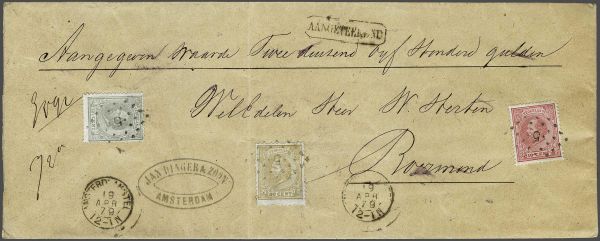 AANGETEEKEND
Aangegeven waarde Twee duizend Vijf Honderd gulden
WelEdelen Heer W. Sterken
Roermond
5
5
JAN DINGER & ZOON
AMSTERDAM
AMSTERDAM
19
APR
79
12-1N
19
APR
79
12-1N